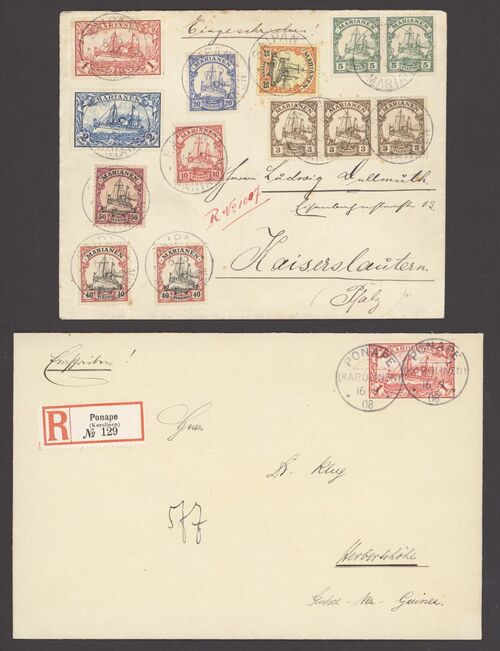 Eingeschrieben!
MARIANEN
1
MARIANEN
20
MARIANEN
25
25
MARIANEN
5
5
MARIANEN
5
5
MARIANEN
2
MARIANEN
10
10
MARIANEN
3
3
MARIANEN
3
3
MARIANEN
3
3
MARIANEN
50
50
MARIANEN
40
40
MARIANEN
40
40
SAIPAN
MARIANEN
Herrn Ludwig Dellmuth
R No 1007
Eisenbahnstrasse 13.
Kaiserslautern.
(Pfalz)
Einschreiben!
KAROLINEN
1
PONAPE
(KAROLINEN)
16
08
PONAPE
(KAROLINEN)
16
08
R
Ponape
(Karolinen)
№ 129
Herrn
Dr. Klug
577
Herbertshöhe
Deutsch - Neu - Guinea.